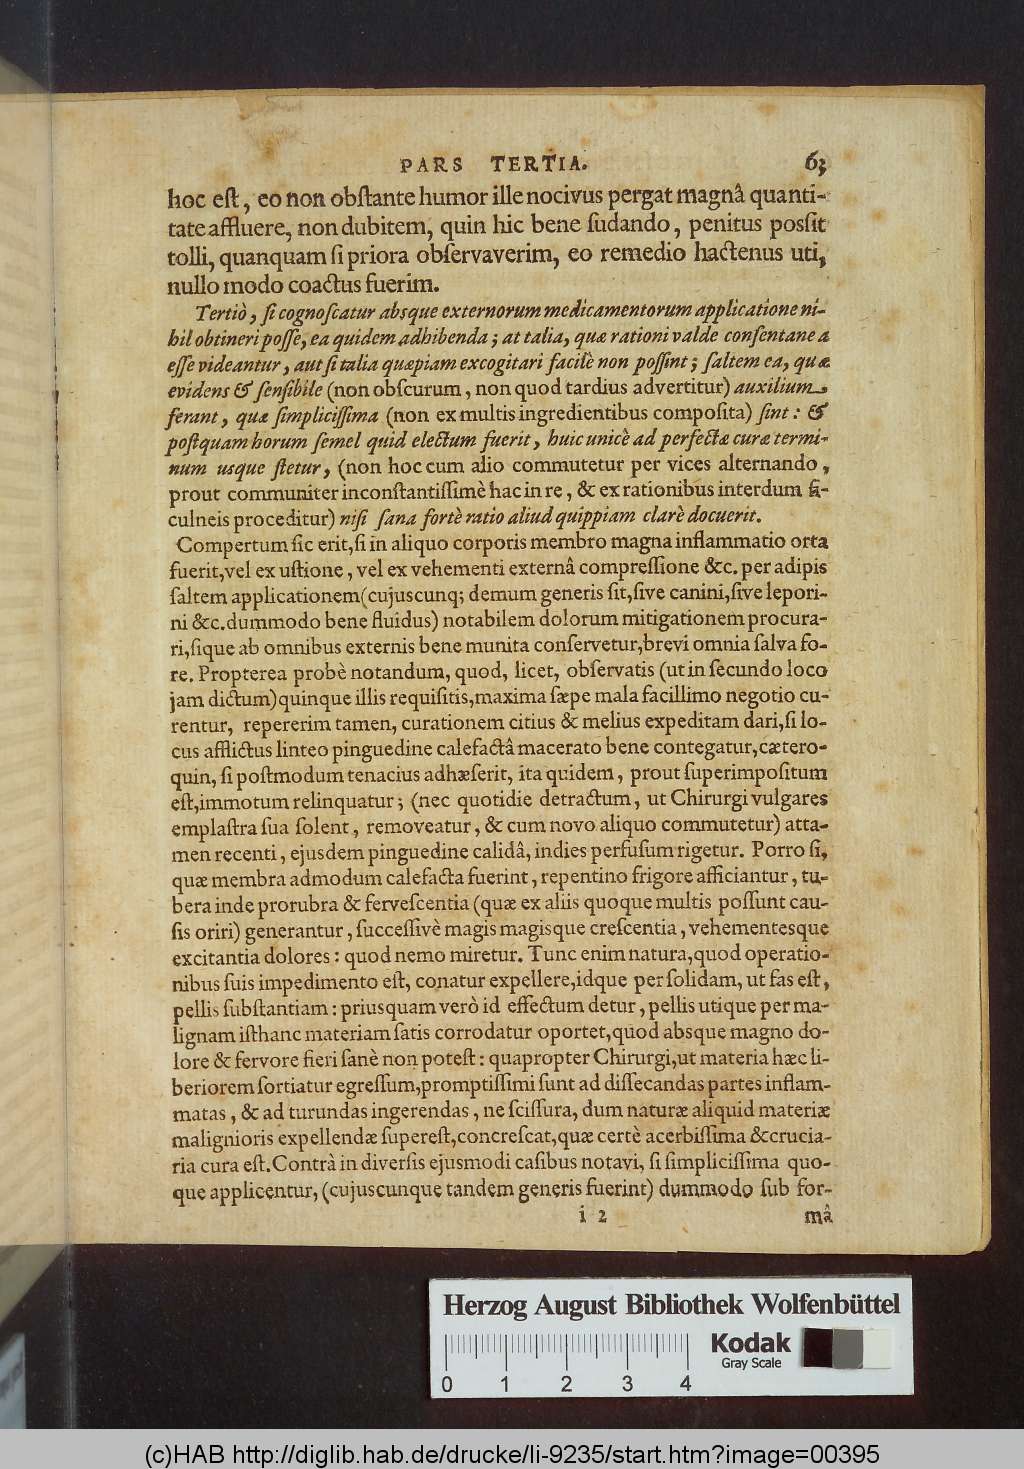 PARS TERTIA. 63
hoc eſt, eo non obſtante humor ille nocivus pergat magnâ quanti-
tate affluere, non dubitem, quin hic bene ſudando, penitus poſſit
tolli, quanquam ſi priora obſervaverim, eo remedio hactenus uti,
nullo modo coactus fuerim.
Tertiò, ſi cognoſcatur absque externorum medicamentorum applicatione ni-
hil obtineri poſſe, ea quidem adhibenda; at talia, quæ rationi valde conſentanea
eſſe videantur, aut ſi talia quæpiam excogitari facilè non poſſint; ſaltem ea, quæ
evidens & ſenſibile (non obſcurum, non quod tardius advertitur) auxilium
ferant, quæ ſimpliciſſima (non ex multis ingredientibus compoſita) ſint: &
poſtquam horum ſemel quid electum fuerit, huic unicè ad perfectæ curæ termi-
num usque ſtetur, (non hoc cum alio commutetur per vices alternando,
prout communiter inconſtantiſſimè hac in re, & ex rationibus interdum fi-
culneis proceditur) niſi ſana fortè ratio aliud quippiam clarè docuerit.
Compertum ſic erit, ſi in aliquo corporis membro magna inflammatio orta
fuerit, vel ex uſtione, vel ex vehementi externâ compreſſione &c. per adipis
ſaltem applicationem (cujuscunq; demum generis ſit, ſive canini, ſive lepori-
ni &c. dummodo bene fluidus) notabilem dolorum mitigationem procura-
ri, ſique ab omnibus externis bene munita conſervetur, brevi omnia ſalva fo-
re. Propterea probè notandum, quod, licet, obſervatis (ut in ſecundo loco
jam dictum) quinque illis requiſitis, maxima ſæpe mala facillimo negotio cu-
rentur, repererim tamen, curationem citius & melius expeditam dari, ſi lo-
cus afflictus linteo pinguedine calefactâ macerato bene contegatur, cætero-
quin, ſi poſtmodum tenacius adhæſerit, ita quidem, prout ſuperimpoſitum
eſt, immotum relinquatur; (nec quotidie detractum, ut Chirurgi vulgares
emplaſtra ſua ſolent, removeatur, & cum novo aliquo commutetur) atta-
men recenti, ejusdem pinguedine calidâ, indies perfuſum rigetur. Porro ſi,
quæ membra admodum calefacta fuerint, repentino frigore afficiantur, tu-
bera inde prorubra & fervefcentia (quæ ex aliis quoque multis poſſunt cau-
ſis oriri) generantur, ſucceſſivè magis magisque creſcentia, vehementesque
excitantia dolores: quod nemo miretur. Tunc enim natura, quod operatio-
nibus ſuis impedimento eſt, conatur expellere, idque per ſolidam, ut fas eſt,
pellis ſubſtantiam: priusquam verò id effectum detur, pellis utique per ma-
lignam iſthanc materiam ſatis corrodatur oportet, quod absque magno do-
lore & fervore fieri ſanè non poteſt: quapropter Chirurgi, ut materia hæc li-
beriorem ſortiatur egreſſum, promptiſſimi ſunt ad diſſecandas partes inflam-
matas, & ad turundas ingerendas, ne ſciſſura, dum naturæ aliquid materiæ
malignioris expellendæ ſupereſt, concreſcat, quæ certè acerbiſſima & crucia-
ria cura eſt. Contrà in diverſis ejusmodi caſibus notavi, ſi ſimpliciſſima quo-
que applicentur, (cujuscunque tandem generis fuerint) dummodo ſub for-
i 2 mâ
Herzog August Bibliothek Wolfenbüttel
Kodak
Gray Scale
0 1 2 3 4
(c)HAB http://diglib.hab.de/drucke/li-9235/start.htm?image=00395